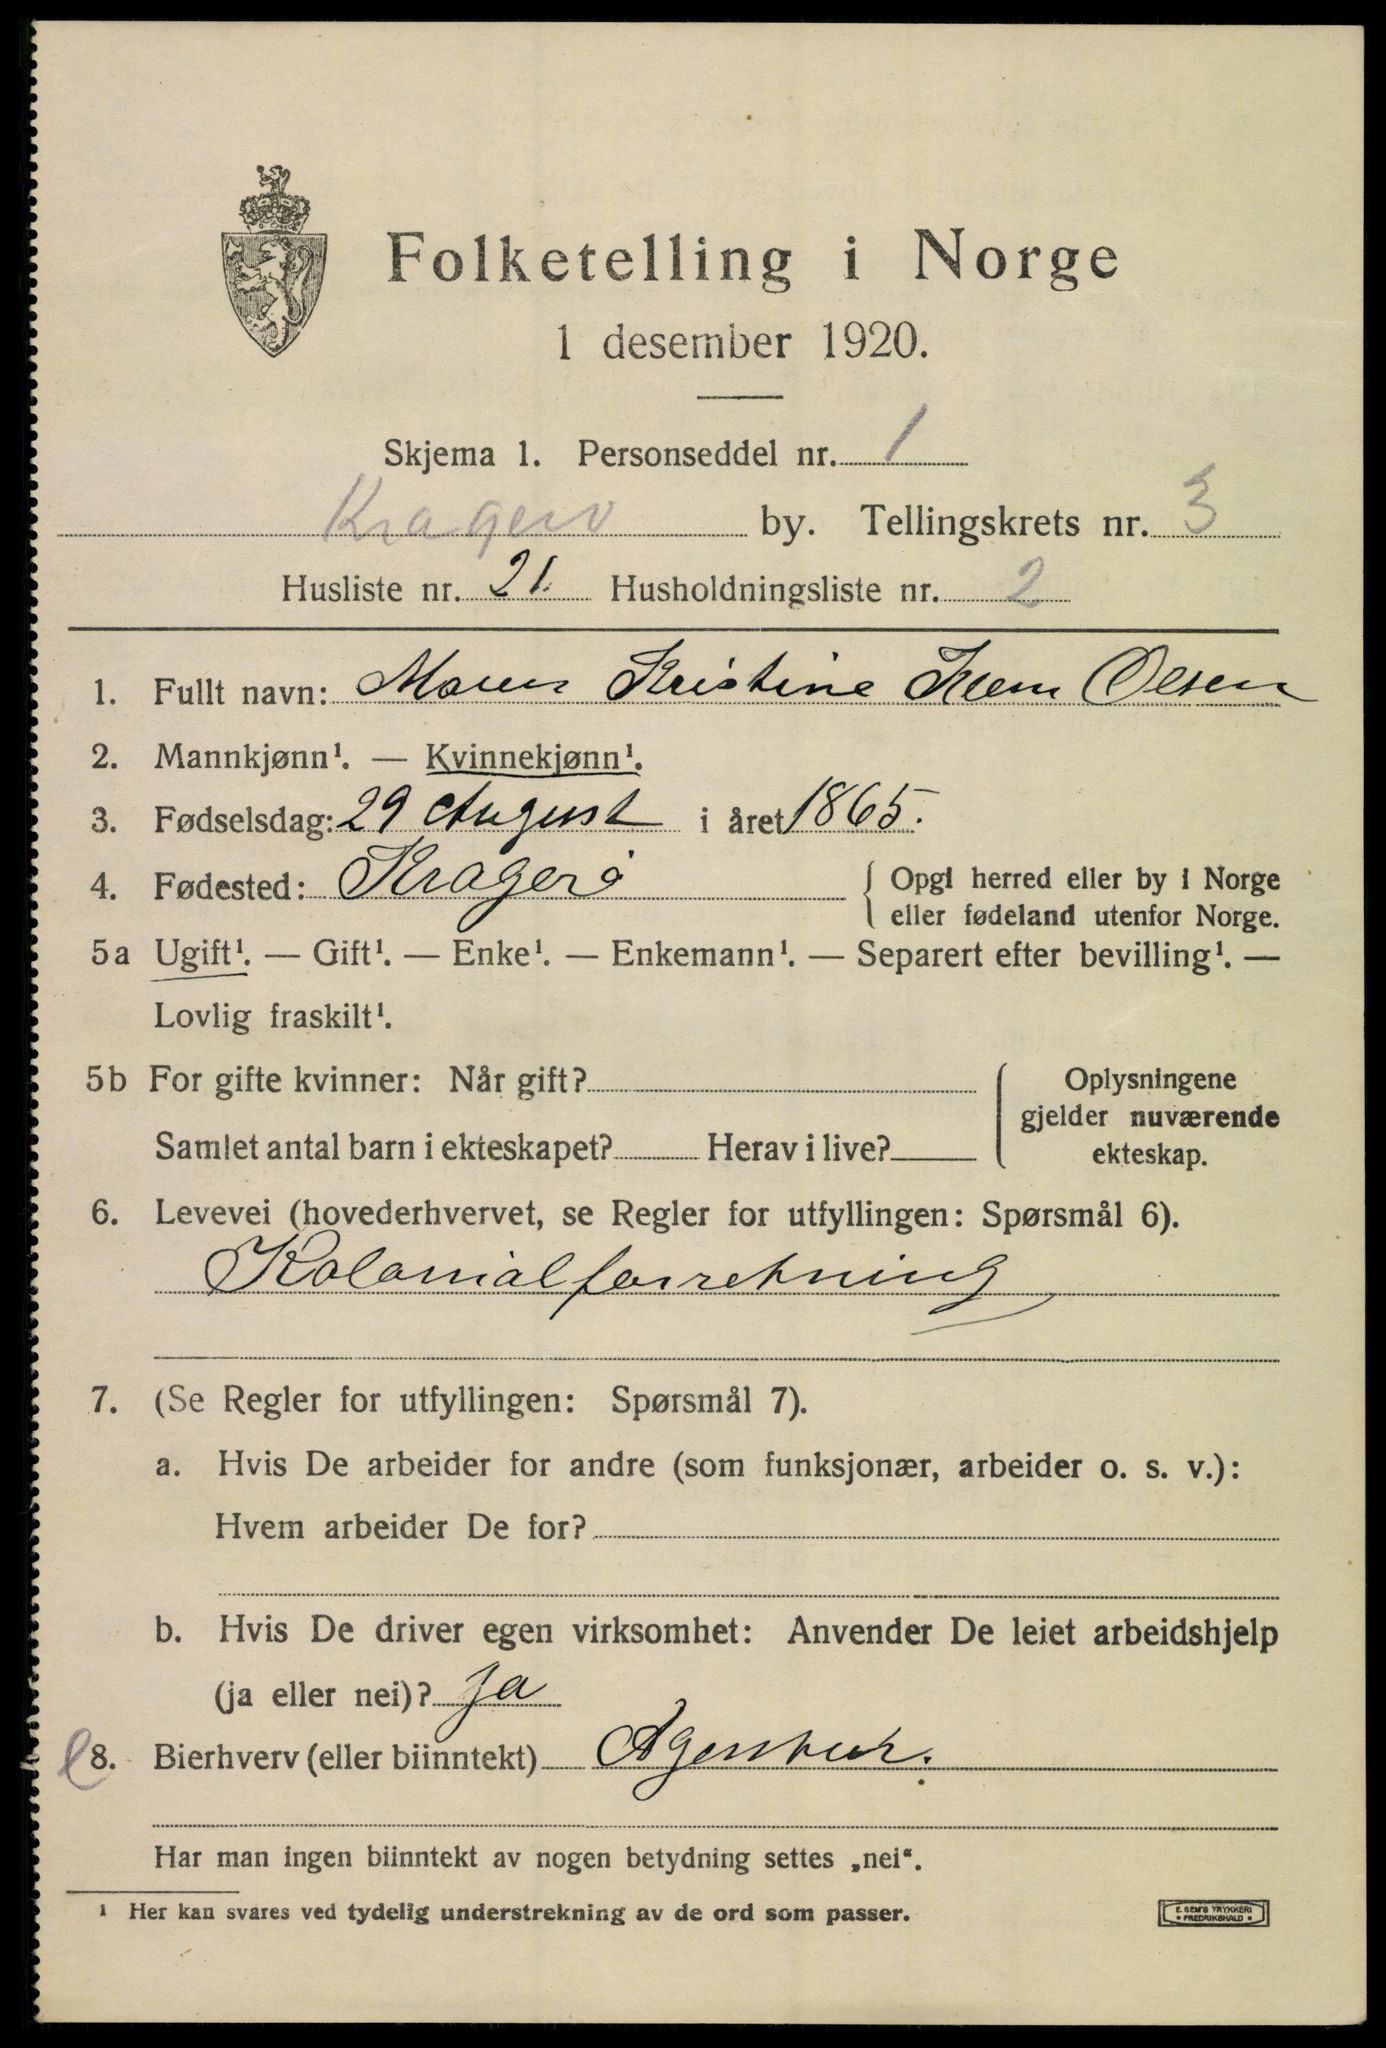 Folketelling i Norge
1 desember 1920.
Skjema 1. Personseddel nr. 1
Kragerø by. Tellingskrets nr. 3
Husliste nr. 21. Husholdningsliste nr. 2
1. Fullt navn: Maren Kristine Olsen
2. Mannkjønn¹. — Kvinnekjønn¹.
3. Fødselsdag: 29 August i året 1865.
4. Fødested: Kragerø { Opgi herred eller by i Norge
eller fødeland utenfor Norge.
5a Ugift¹. — Gift¹. — Enke¹. — Enkemann¹. — Separert efter bevilling¹. —
Lovlig fraskilt¹.
5b For gifte kvinner: Når gift? Oplysningene
gjelder nuværende
Samlet antal barn i ekteskapet? Herav i live? ekteskap.
6. Levevei (hovederhvervet, se Regler for utfyllingen: Spørsmål 6).
Kolonialforretning
7. (Se Regler for utfyllingen: Spørsmål 7).
a. Hvis De arbeider for andre (som funksjonær, arbeider o. s. v.):
Hvem arbeider De for?
b. Hvis De driver egen virksomhet: Anvender De leiet arbeidshjelp
(ja eller nei)? Ja
8. Bierhverv (eller biinntekt) Agentur.
Har man ingen biinntekt av nogen betydning settes „nei“.
¹ Her kan svares ved tydelig understrekning av de ord som passer.
E. SEM'S TRYKKERI
• FREDRIKSHALD •